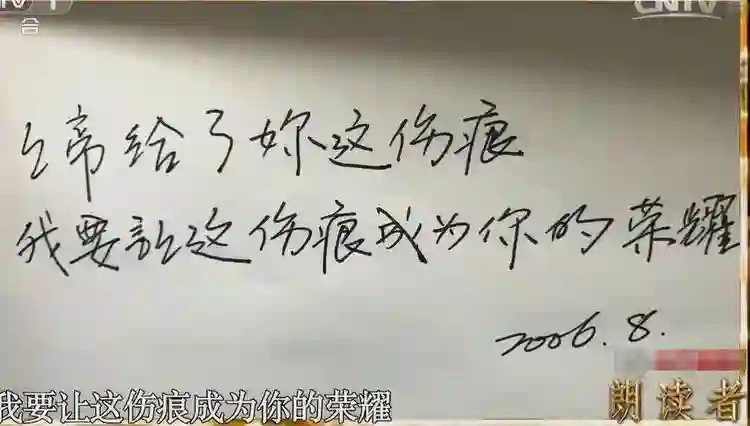 CNTV
合
上帝给了妳这伤痕
我要让这伤痕成为你的荣耀
2006.8.
我要让这伤痕成为你的荣耀
朗读者